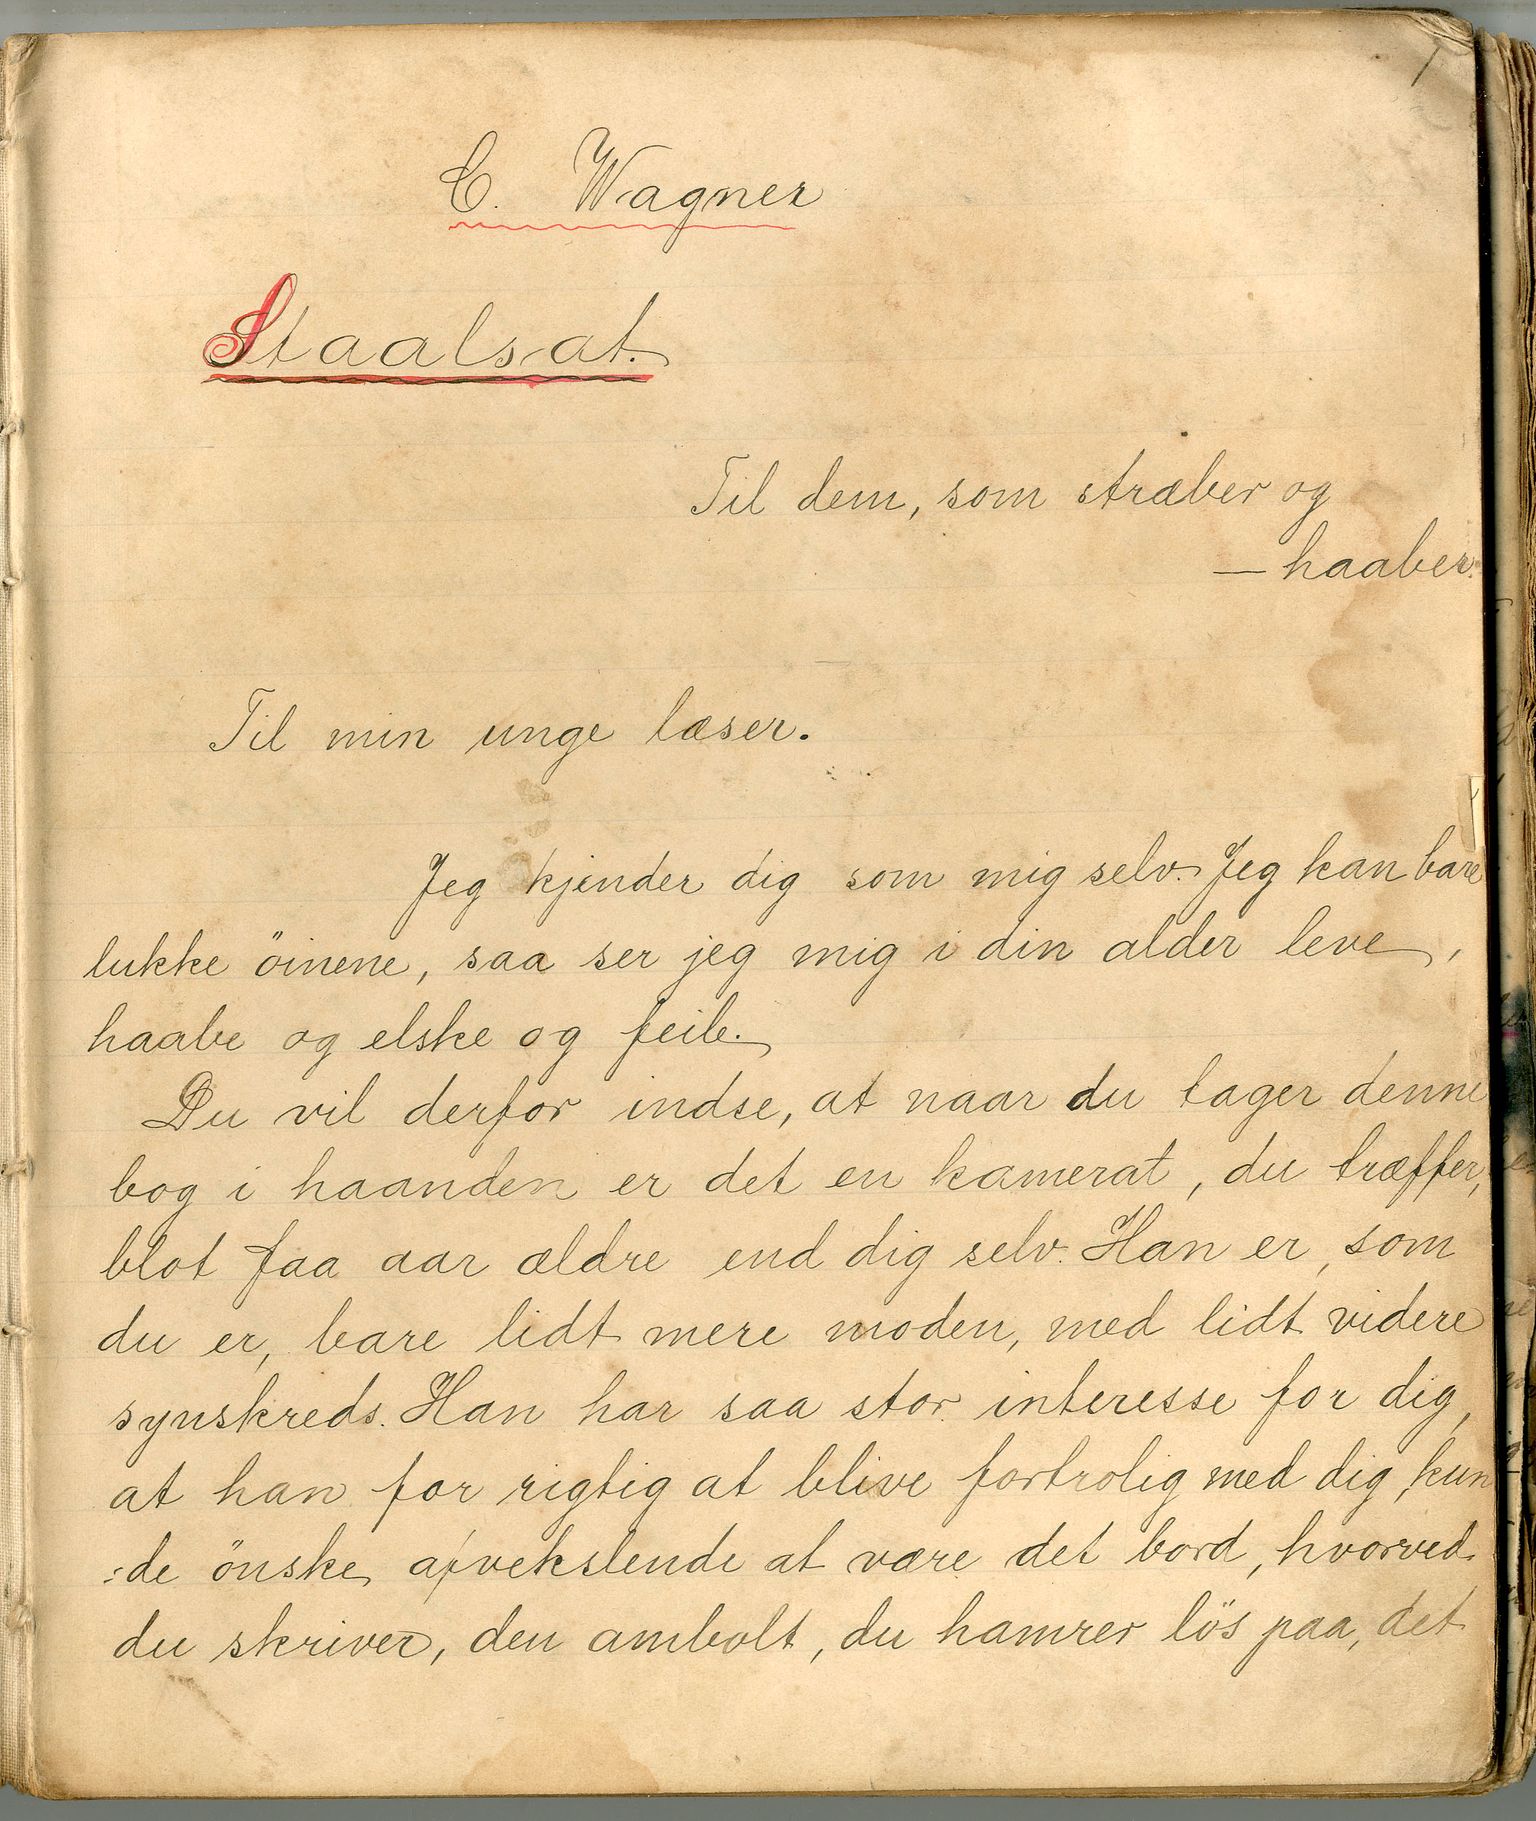 1
C. Wagner
Staalsat.
Til dem, som stræber og
— haaber.
Til min unge læser.
Jeg kjender dig som mig selv. Jeg kan bare
lukke öinene, saa ser jeg mig i din alder leve,
haabe og elske og feile.
Du vil derfor indse, at naar du tager denne
bog i haanden er det en kamerat, du træffer,
blot faa aar ældre end dig selv. Han er, som
du er, bare lidt mere moden, med lidt videre
synskreds. Han har saa stor interesse for dig,
at han for rigtig at blive fortrolig med dig, kun
:de önske afvekslende at være det bord, hvorved
du skriver, den ambolt, du hamrer lös paa, det